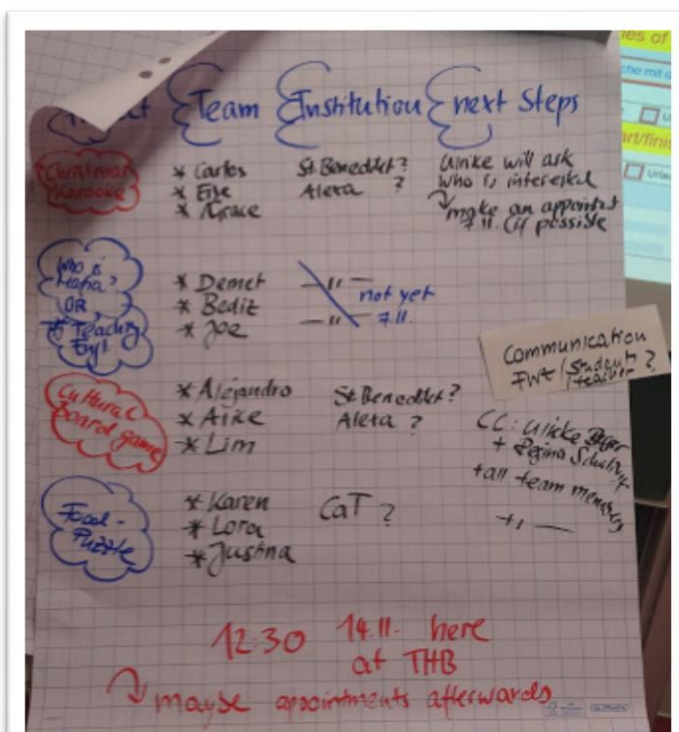 Team Institution next Steps
Christmas
Karaoke
* Carlos
* Eife
* Grace
St. Beneddct?
Alexa ?
Ulrike will ask
who is interested
make an appointmt
7.11. (if possible
Who is
Mafia?
OR
Teaching
* Demet
* Bediz
* Joe
not yet
7.11.
Communication
FWT/Student ?
/teacher
Cultural
board game
* Alejandro
* Alice
* Lim
St. Beneddct?
Alexa ?
CC: Ulrike
+ Regina
+ all team members
Food-
Puzzle
* Karen
* Lora
* Justina
CaT ?
12:30 14.11. here
at THB
maybe appointments afterwards